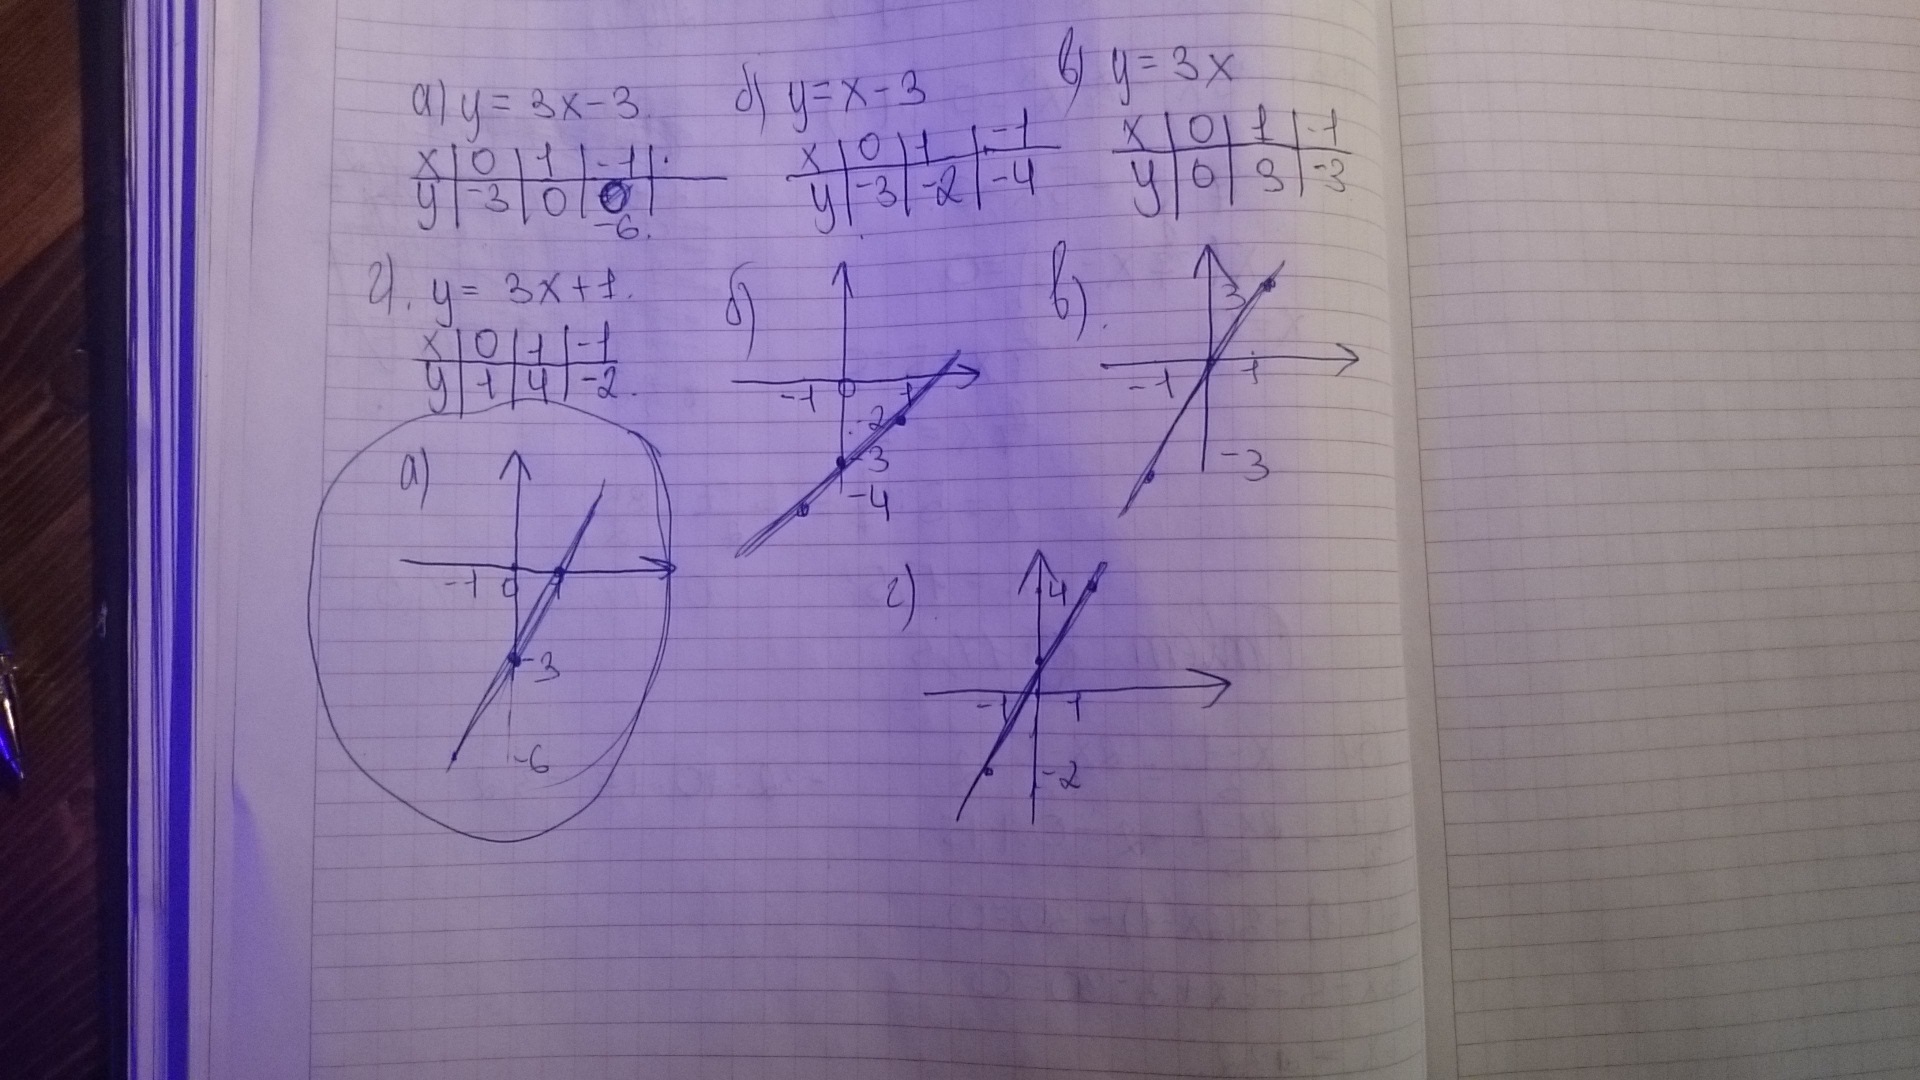 а) y = 3x - 3.
x | 0 | 1 | -1 |
y | -3 | 0 | -6.
б) y = x - 3
x | 0 | 1 | -1
y | -3 | -2 | -4
в) y = 3x
x | 0 | 1 | -1
y | 0 | 3 | -3
г). y = 3x + 1.
x | 0 | 1 | -1
y | 1 | 4 | -2.
б)
-1 0 1
-2
-3
-4
в).
3
-1 1
-3
а)
-1 0 1
-3
-6
г)
4
-1 1
-2